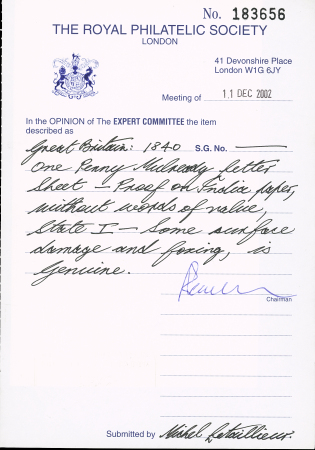 No. 183656
THE ROYAL PHILATELIC SOCIETY
LONDON
41 Devonshire Place
London W1G 6JY
Meeting of 11 DEC 2002
In the OPINION of The EXPERT COMMITTEE the item
described as
Great Britain: 1840 S.G. No. —
One Penny Mulready Letter
Sheet – Proof on India paper,
without words of value,
State I – Some surface
damage and foxing, is
Genuine.
Chairman
Submitted by Michel